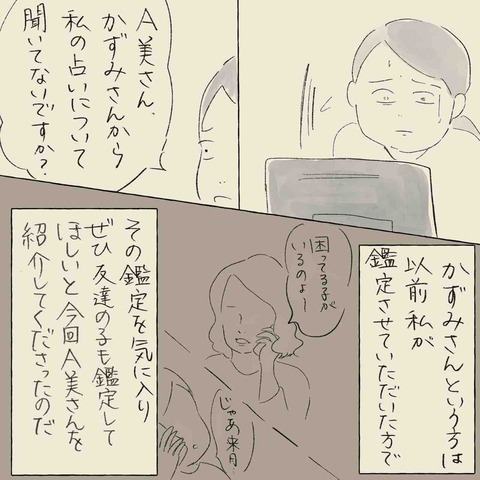 A美さん、
かずみさんから
私の占いについて
聞いてないですか?
かずみさんという方は
以前私が
鑑定させていただいた方で
困ってる子が
いるのよー
じゃあ来月…
その鑑定を気に入り
ぜひ友達の子も鑑定して
ほしいと今回A美さんを
紹介してくださったのだ